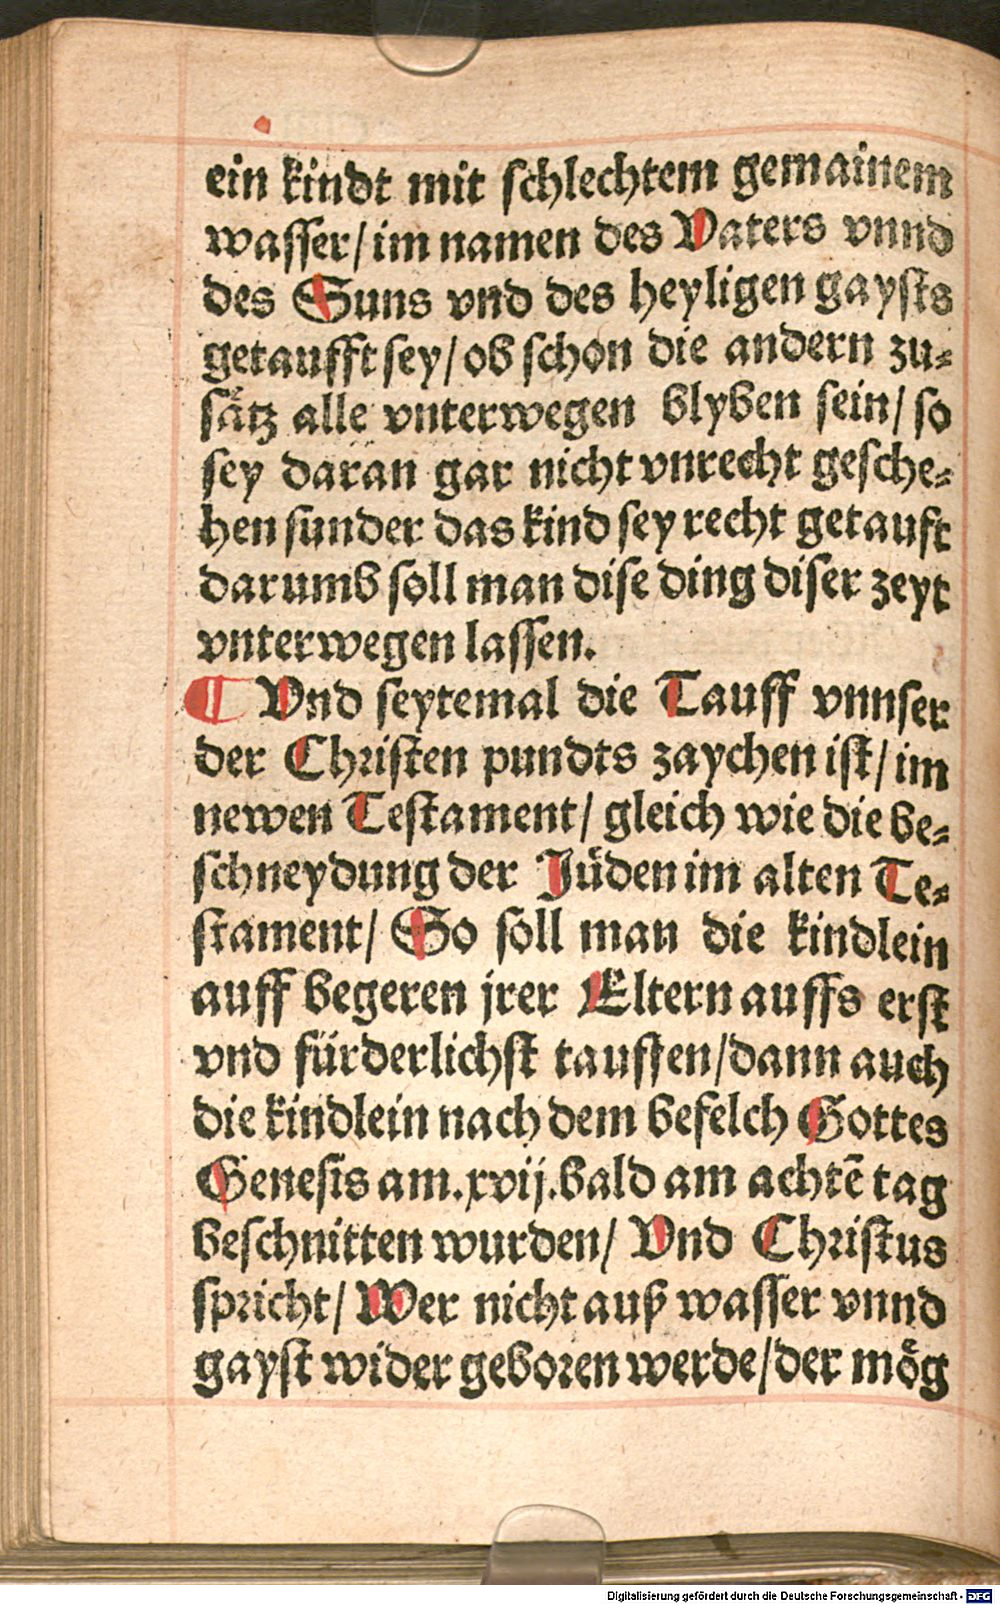 ein kindt mit schlechtem gemainem
wasser/ im namen des Vaters vnnd
des Suns vnd des heyligen gaysts
getaufft sey/ ob schon die andern zu⸗
sätz alle vnterwegen blyben sein/ so
sey daran gar nicht vnrecht gesche⸗
hen sunder das kind sey recht getauft
darumb soll man dise ding diser zeyt
vnterwegen lassen.
¶ Vnd seytemal die Tauff vnnser
der Christen pundts zaychen ist/ im
newen Testament/ gleich wie die be⸗
schneydung der Jüden im alten Te⸗
stament/ So soll man die kindlein
auff begeren jrer Eltern auffs erst
vnd fürderlichst tauffen/ dann auch
die kindlein nach dem befelch Gottes
Genesis am .xvij. bald am achtē tag
beschnitten wurden/ Vnd Christus
spricht/ Wer nicht auß wasser vnnd
gayst wider geboren werde/ der mög
Digitalisierung gefördert durch die Deutsche Forschungsgemeinschaft - DFG